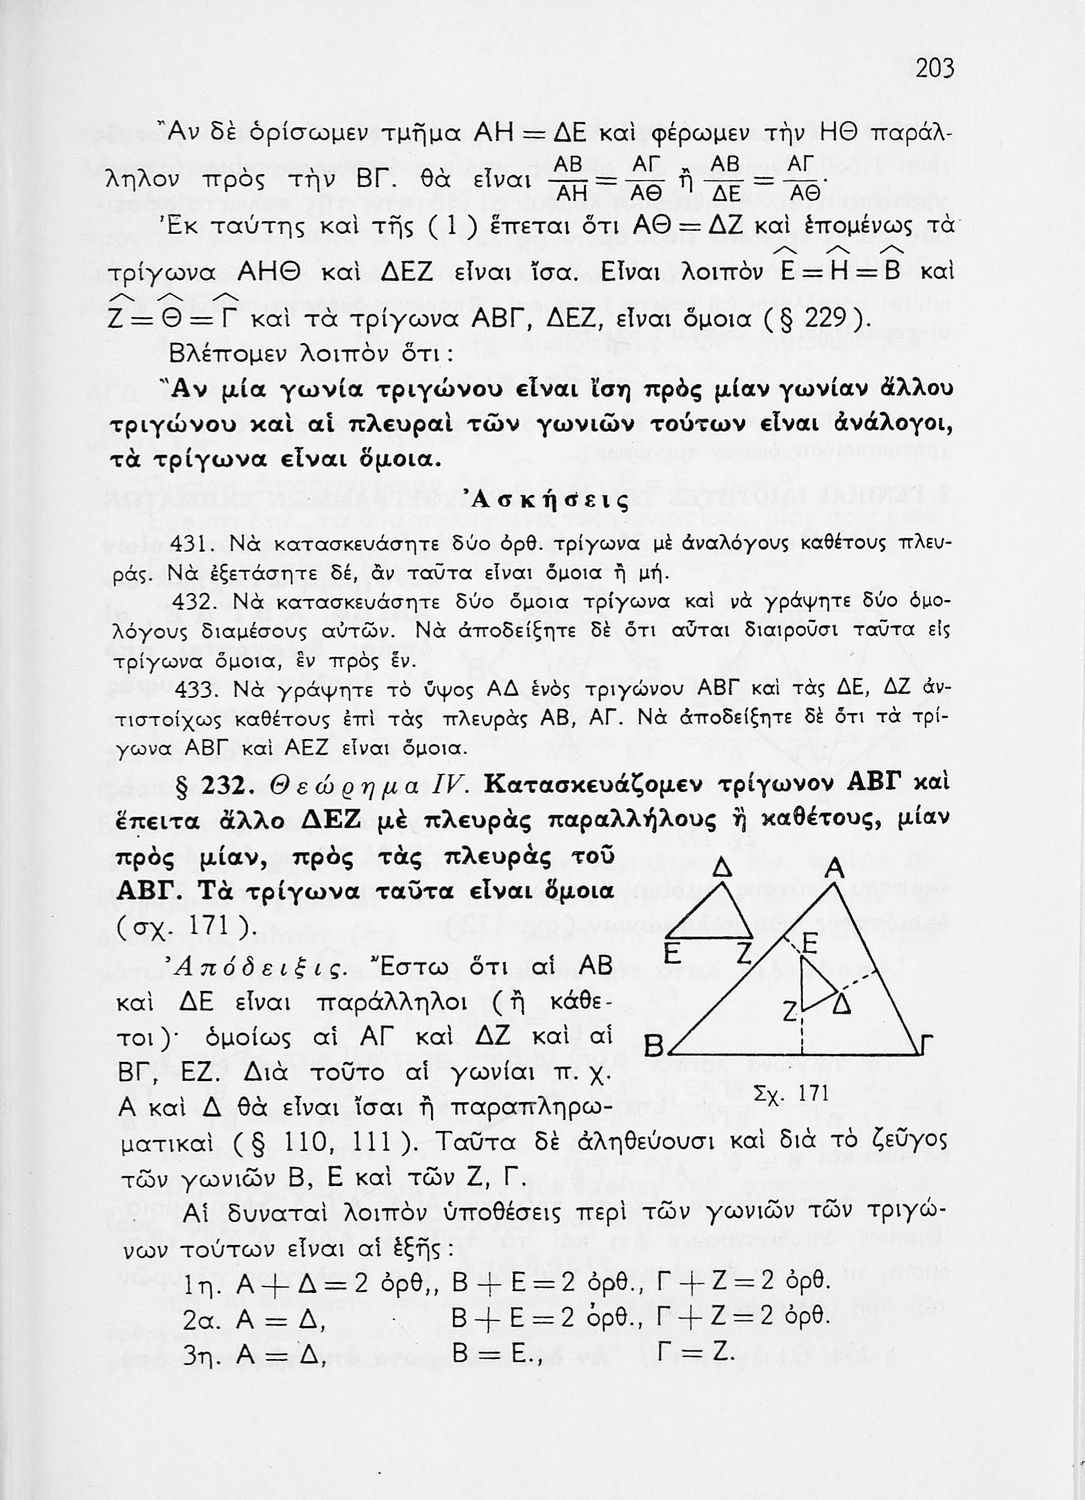 203
Ἂν δὲ ὁρίσωμεν τμῆμα ΑΗ = ΔΕ καὶ φέρωμεν τὴν ΗΘ παράλ-
ληλον πρὸς τὴν ΒΓ. θὰ εἶναι ΑΒ/ΑΗ = ΑΓ/ΑΘ ἢ ΑΒ/ΔΕ = ΑΓ/ΑΘ·
Ἐκ ταύτης καὶ τῆς ( 1 ) ἕπεται ὅτι ΑΘ = ΔΖ καὶ ἑπομένως τὰ
τρίγωνα ΑΗΘ καὶ ΔΕΖ εἶναι ἴσα. Εἶναι λοιπὸν Ε̂ = Η̂ = Β̂ καὶ
Ζ̂ = Θ̂ = Γ̂ καὶ τὰ τρίγωνα ΑΒΓ, ΔΕΖ, εἶναι ὅμοια ( § 229 ).
Βλέπομεν λοιπὸν ὅτι :
Ἂν μία γωνία τριγώνου εἶναι ἴση πρὸς μίαν γωνίαν ἄλλου
τριγώνου καὶ αἱ πλευραὶ τῶν γωνιῶν τούτων εἶναι ἀνάλογοι,
τὰ τρίγωνα εἶναι ὅμοια.
Ἀσκήσεις
431. Νὰ κατασκευάσητε δύο ὀρθ. τρίγωνα μὲ ἀναλόγους καθέτους πλευ-
ράς. Νὰ ἐξετάσητε δέ, ἂν ταῦτα εἶναι ὅμοια ἢ μή.
432. Νὰ κατασκευάσητε δύο ὅμοια τρίγωνα καὶ νὰ γράψητε δύο ὁμο-
λόγους διαμέσους αὐτῶν. Νὰ ἀποδείξητε δὲ ὅτι αὗται διαιροῦσι ταῦτα εἰς
τρίγωνα ὅμοια, ἓν πρὸς ἕν.
433. Νὰ γράψητε τὸ ὕψος ΑΔ ἑνὸς τριγώνου ΑΒΓ καὶ τὰς ΔΕ, ΔΖ ἀν-
τιστοίχως καθέτους ἐπὶ τὰς πλευρὰς ΑΒ, ΑΓ. Νὰ ἀποδείξητε δὲ ὅτι τὰ τρί-
γωνα ΑΒΓ καὶ ΑΕΖ εἶναι ὅμοια.
§ 232. Θεώρημα IV. Κατασκευάζομεν τρίγωνον ΑΒΓ καὶ
ἔπειτα ἄλλο ΔΕΖ μὲ πλευρὰς παραλλήλους ἢ καθέτους, μίαν
πρὸς μίαν, πρὸς τὰς πλευρὰς τοῦ
ΑΒΓ. Τὰ τρίγωνα ταῦτα εἶναι ὅμοια
( σχ. 171 ).
Ἀπόδειξις. Ἔστω ὅτι αἱ ΑΒ
καὶ ΔΕ εἶναι παράλληλοι ( ἢ κάθε-
τοι )· ὁμοίως αἱ ΑΓ καὶ ΔΖ καὶ αἱ
ΒΓ, ΕΖ. Διὰ τοῦτο αἱ γωνίαι π. χ.
Α καὶ Δ θὰ εἶναι ἴσαι ἢ παραπληρω-
ματικαὶ ( § 110, 111 ). Ταῦτα δὲ ἀληθεύουσι καὶ διὰ τὸ ζεῦγος
τῶν γωνιῶν Β, Ε καὶ τῶν Ζ, Γ.
Δ Α
Ε Ζ Ε
Ζ Δ
Β Γ
Σχ. 171
Αἱ δυναταὶ λοιπὸν ὑποθέσεις περὶ τῶν γωνιῶν τῶν τριγώ-
νων τούτων εἶναι αἱ ἑξῆς :
1η. Α + Δ = 2 ὀρθ,, Β + Ε = 2 ὀρθ., Γ + Ζ = 2 ὀρθ.
2α. Α = Δ, Β + Ε = 2 ὀρθ., Γ + Ζ = 2 ὀρθ.
3η. Α = Δ, Β = Ε., Γ = Ζ.